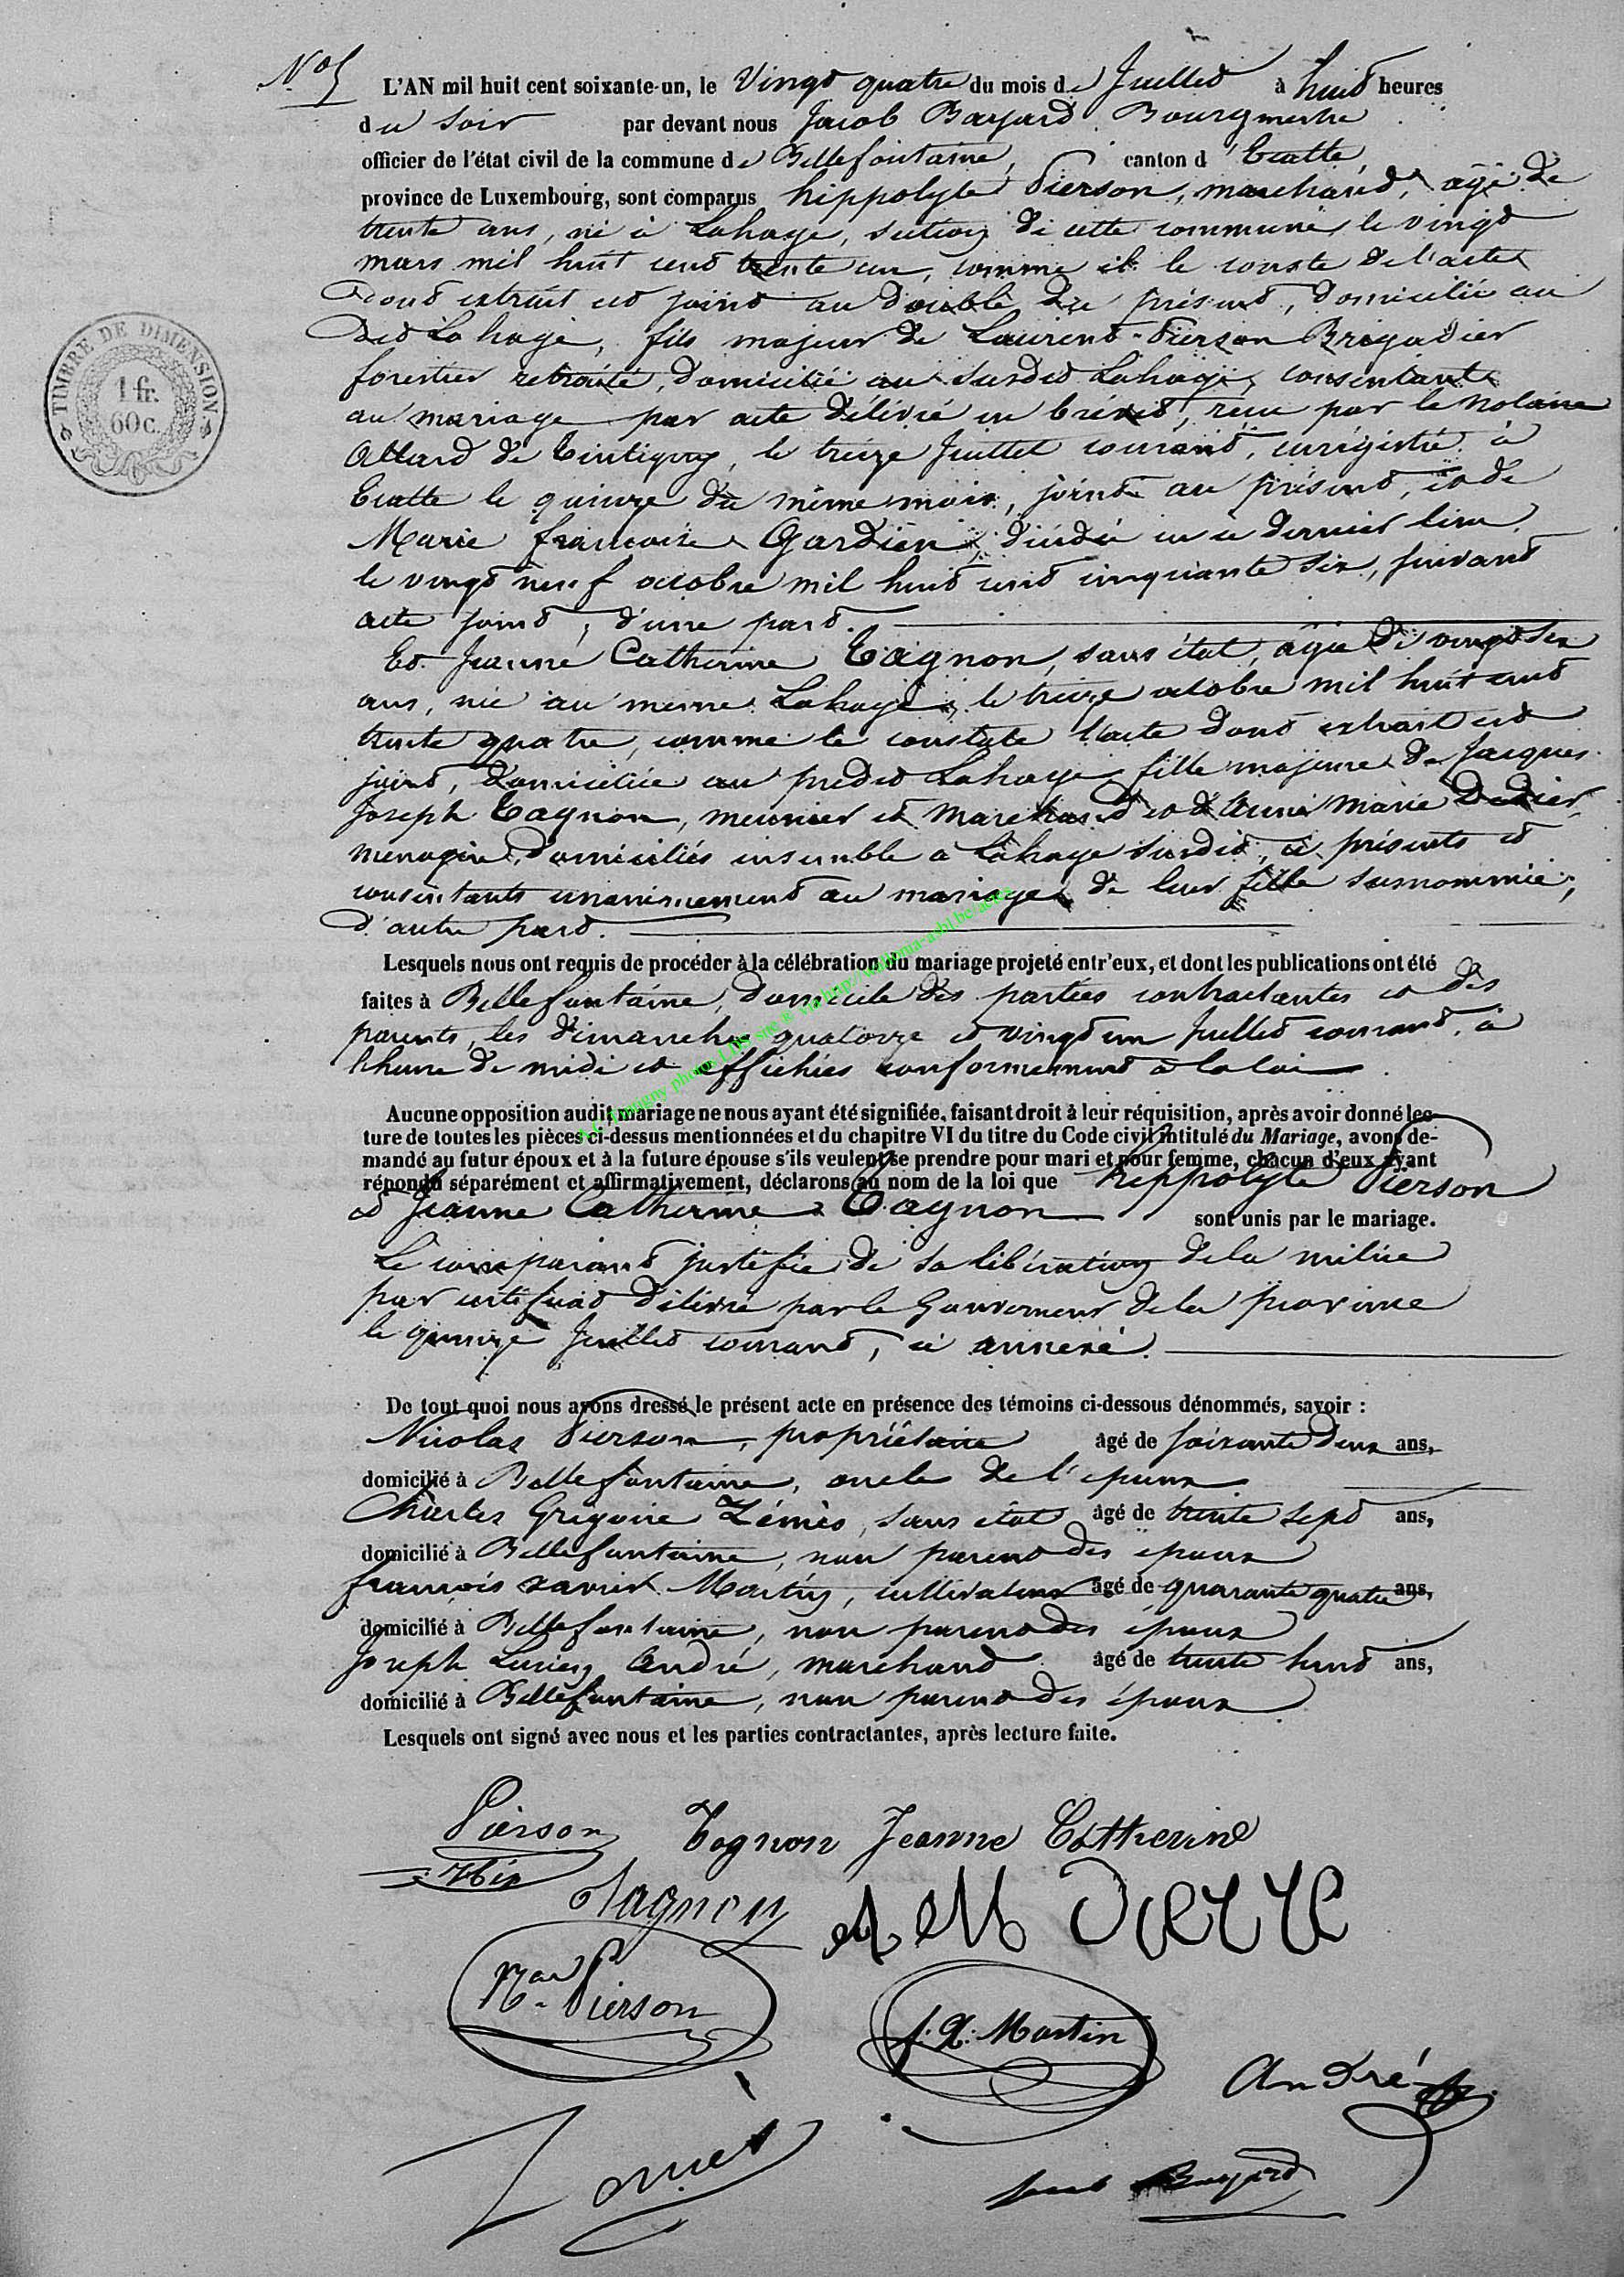 N° 5
L'AN mil huit cent soixante-un, le Vingt quatre du mois de Juillet à huit heures
du soir par devant nous Jacob Bayard Bourgmestre
officier de l'état civil de la commune de Bellefontaine, canton d'Etalle,
province de Luxembourg, sont comparus hippolyte Pierson, marchand, agé de
trente ans, né à Lahage, section de cette commune, le vingt
mars mil huit cent trente un, comme il le conste de l'acte
dont extrait est joint au double du présent, domicilié au
dit Lahage, fils majeur de Laurent Pierson Brigadier
forestier retraité, domicilié au susdit Lahage, consentant
au mariage par acte délivré en brevet, reçu par le Notaire
Allard de Tintigny, le treize Juillet courant, enrégistré à
Etalle le quinze du même mois, joint au présent, et de
Marie françoise Gardien, décédée en ce dernier lieu
le vingt neuf octobre mil huit cent cinquante six, suivant
acte joint, d'une part.
Et Jeanne Catherine Tagnon, sans état, âgée de vingt six
ans, née au même Lahage, le treize octobre mil huit cent
trente quatre, comme le constate l'acte dont extrait est
joint, domiciliée au predit Lahage, fille majeure de Jacques
Joseph Tagnon, meunier et marchand et d'Anne Marie Didier,
menagère, domiciliés ensemble à Lahage susdit, ci présents et
consentants unanimement au mariage de leur fille susnommée,
d'autre part.
Lesquels nous ont requis de procéder à la célébration du mariage projeté entr'eux, et dont les publications ont été
faites à Bellefontaine, domicile des parties contractantes et des
parents, les dimanches quatorze et vingt un Juillet courant, à
l'heure de midi et affichées conformément à la loi
Aucune opposition audit mariage ne nous ayant été signifiée, faisant droit à leur réquisition, après avoir donné lec-
ture de toutes les pièces ci-dessus mentionnées et du chapitre VI du titre du Code civil intitulé du Mariage, avons de-
mandé au futur époux et à la future épouse s'ils veulent se prendre pour mari et pour femme, chacun d'eux ayant
répondu séparément et affirmativement, déclarons au nom de la loi que hippolyte Pierson
et Jeanne Catherine Tagnon sont unis par le mariage.
Le comparant justifie de sa libération de la milice
par certificat délivré par le Gouverneur de la province
le quinze Juillet courant, ci annexé.
De tout quoi nous avons dressé le présent acte en présence des témoins ci-dessous dénommés, savoir :
Nicolas Pierson, propriétaire âgé de soixante deux ans,
domicilié à Bellefontaine, oncle de l'epoux
Charles Grégoire Zémès, sans état âgé de trente sept ans,
domicilié à Bellefontaine, non parent des epoux
françois xavier Martin, cultivateur âgé de quarante quatre ans,
domicilié à Bellefontaine, non parent des époux
Joseph Lucien André, marchand âgé de trente huit ans,
domicilié à Bellefontaine, non parent des époux
Lesquels ont signé avec nous et les parties contractantes, après lecture faite.
Pierson Tagnon Jeanne Catherine
Tagnon A M
Pierson
f. X. Martin
André
Jacob Bayard
TIMBRE DE DIMENSION
1 fr.
60 c.